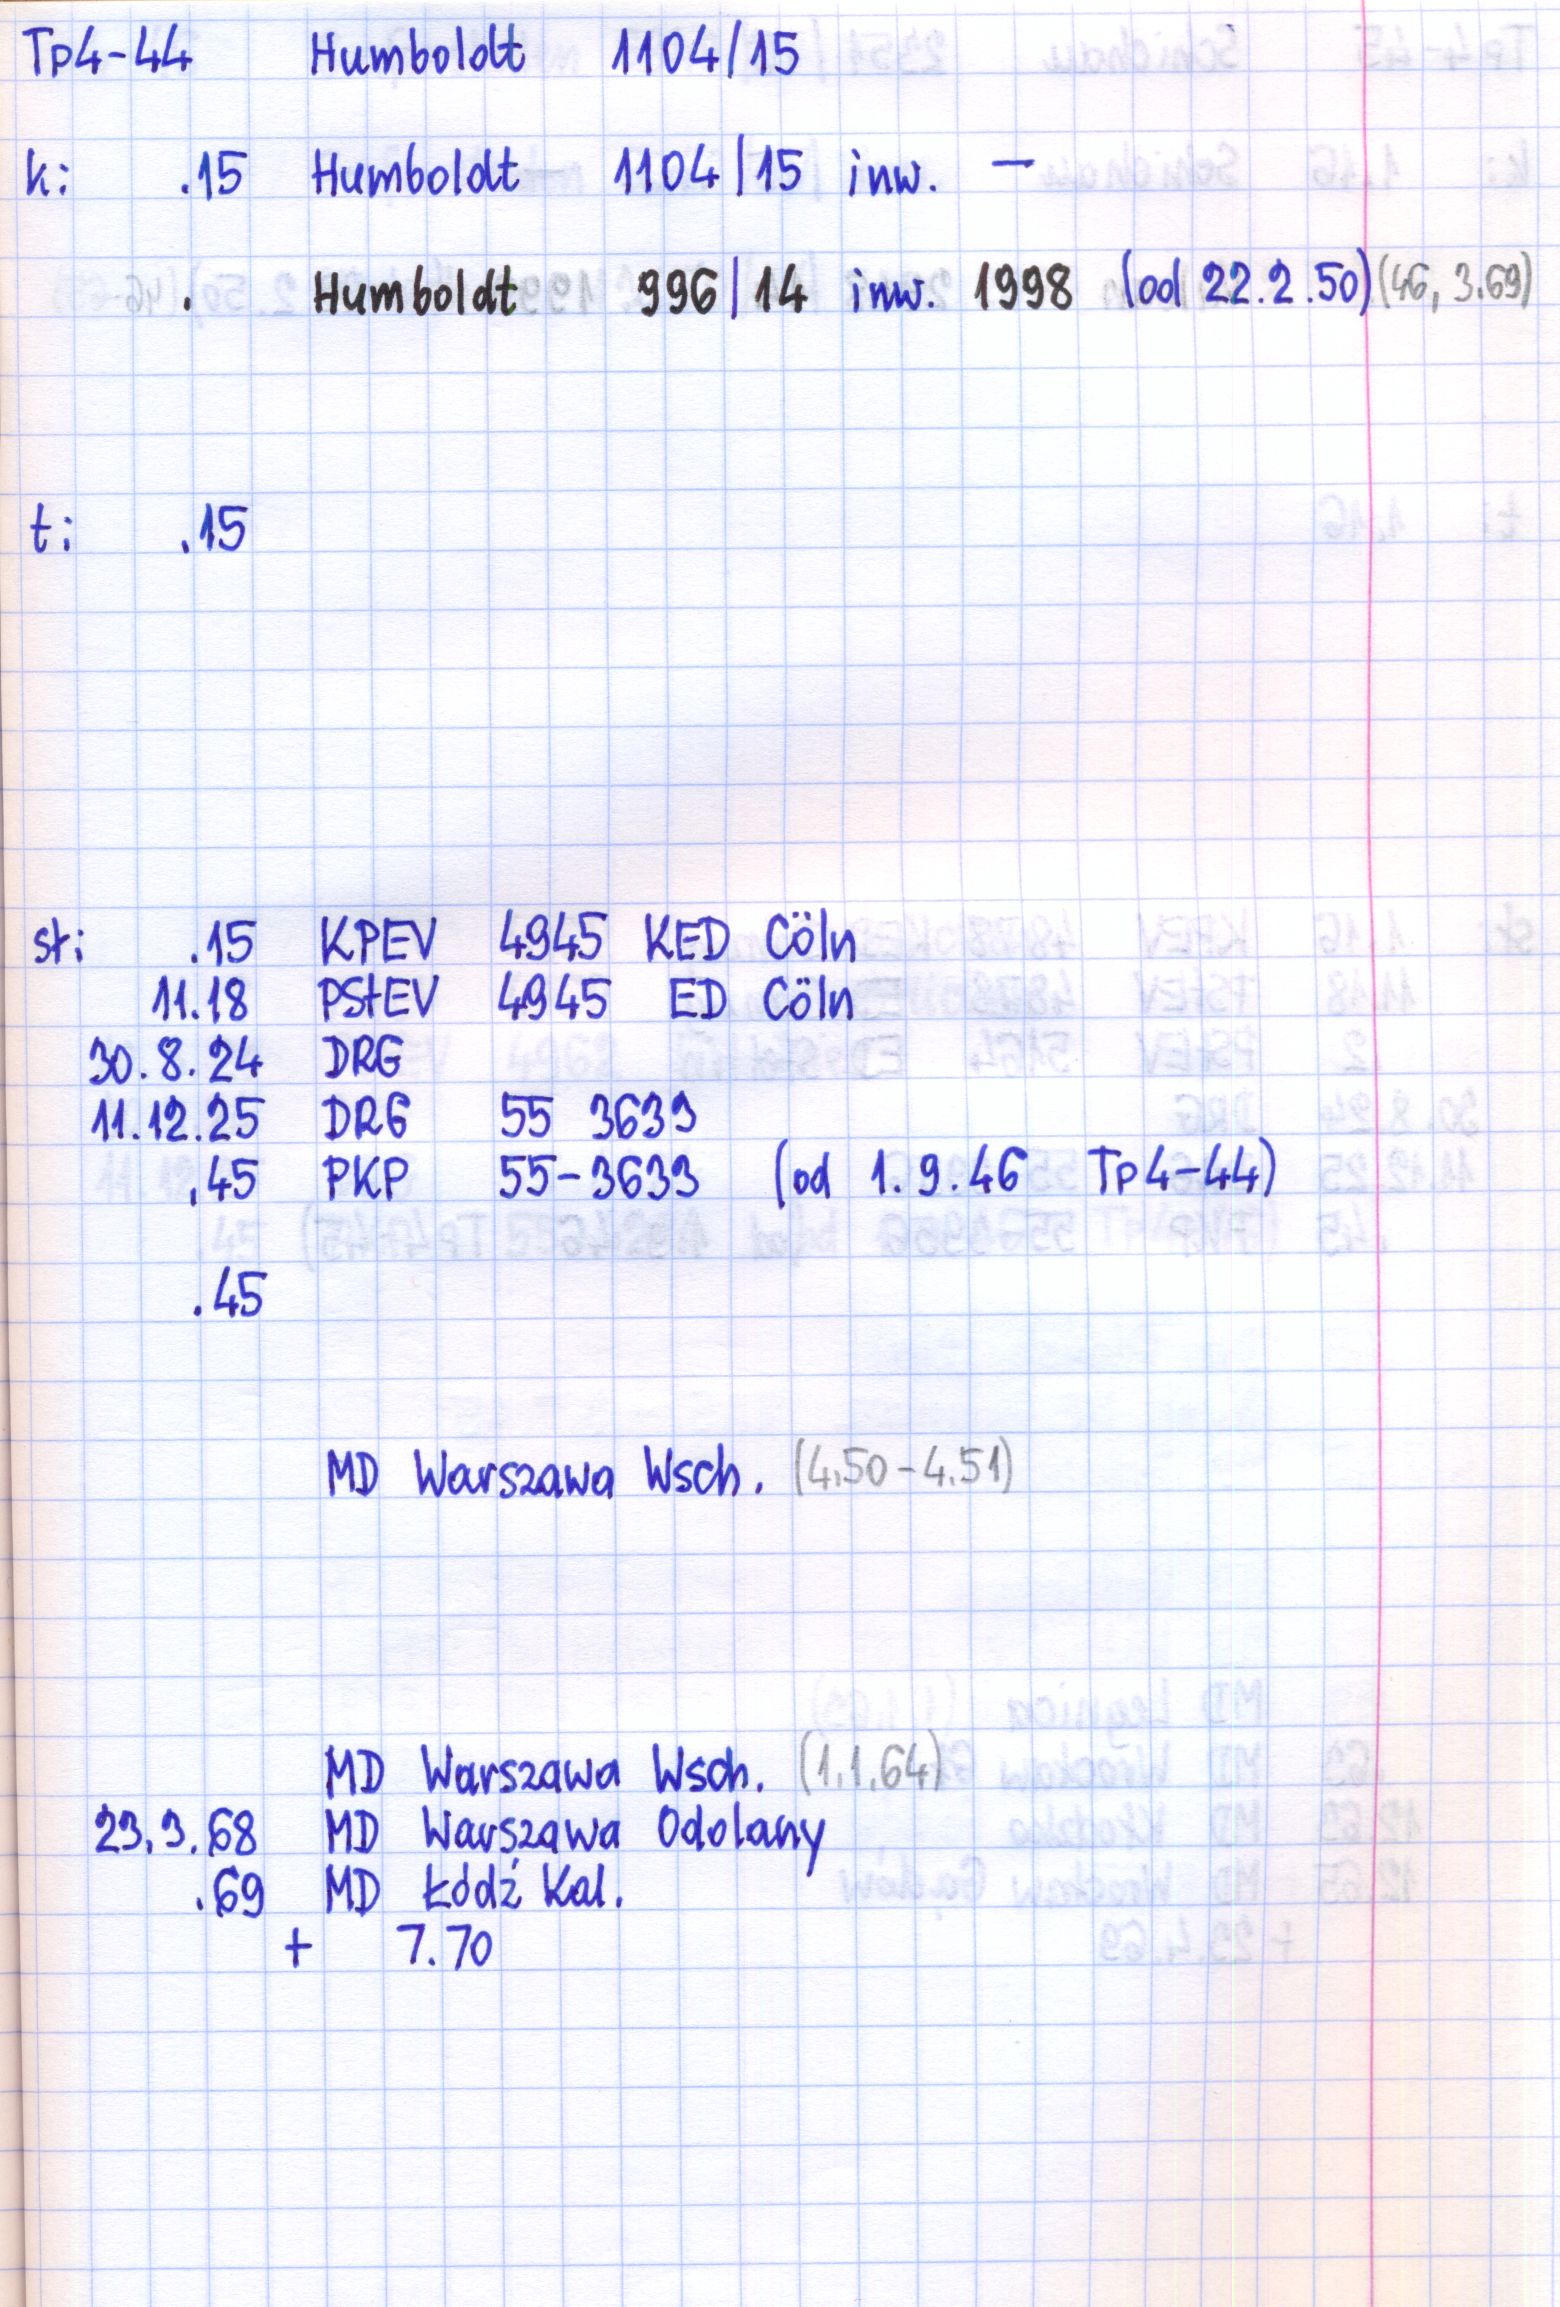 Tp4-44 Humboldt 1104/15
k: .15 Humboldt 1104/15 inw. —
. Humboldt 996/14 inw. 1998 (od 22.2.50) (46, 3.69)
t: .15
st: .15 KPEV 4945 KED Cöln
11.18 PStEV 4945 ED Cöln
30.8.24 DRG
11.12.25 DRG 55 3639
.45 PKP 55-3639 (od 1.9.46 Tp4-44)
.45
MD Warszawa Wsch. (4.50-4.51)
MD Warszawa Wsch. (1.1.64)
23.9.68 MD Warszawa Odolany
.69 MD Łódź Kal.
+ 7.70